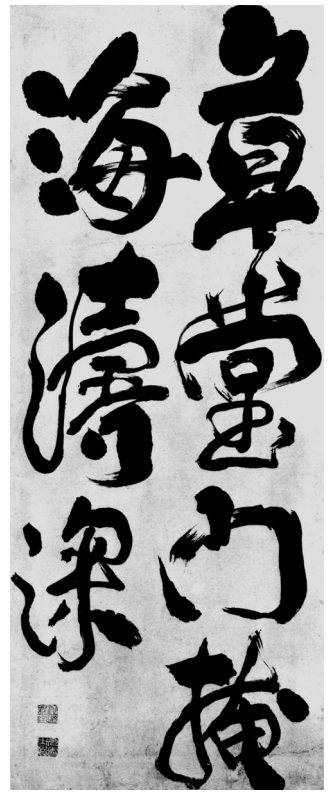 草堂門掩
海濤深